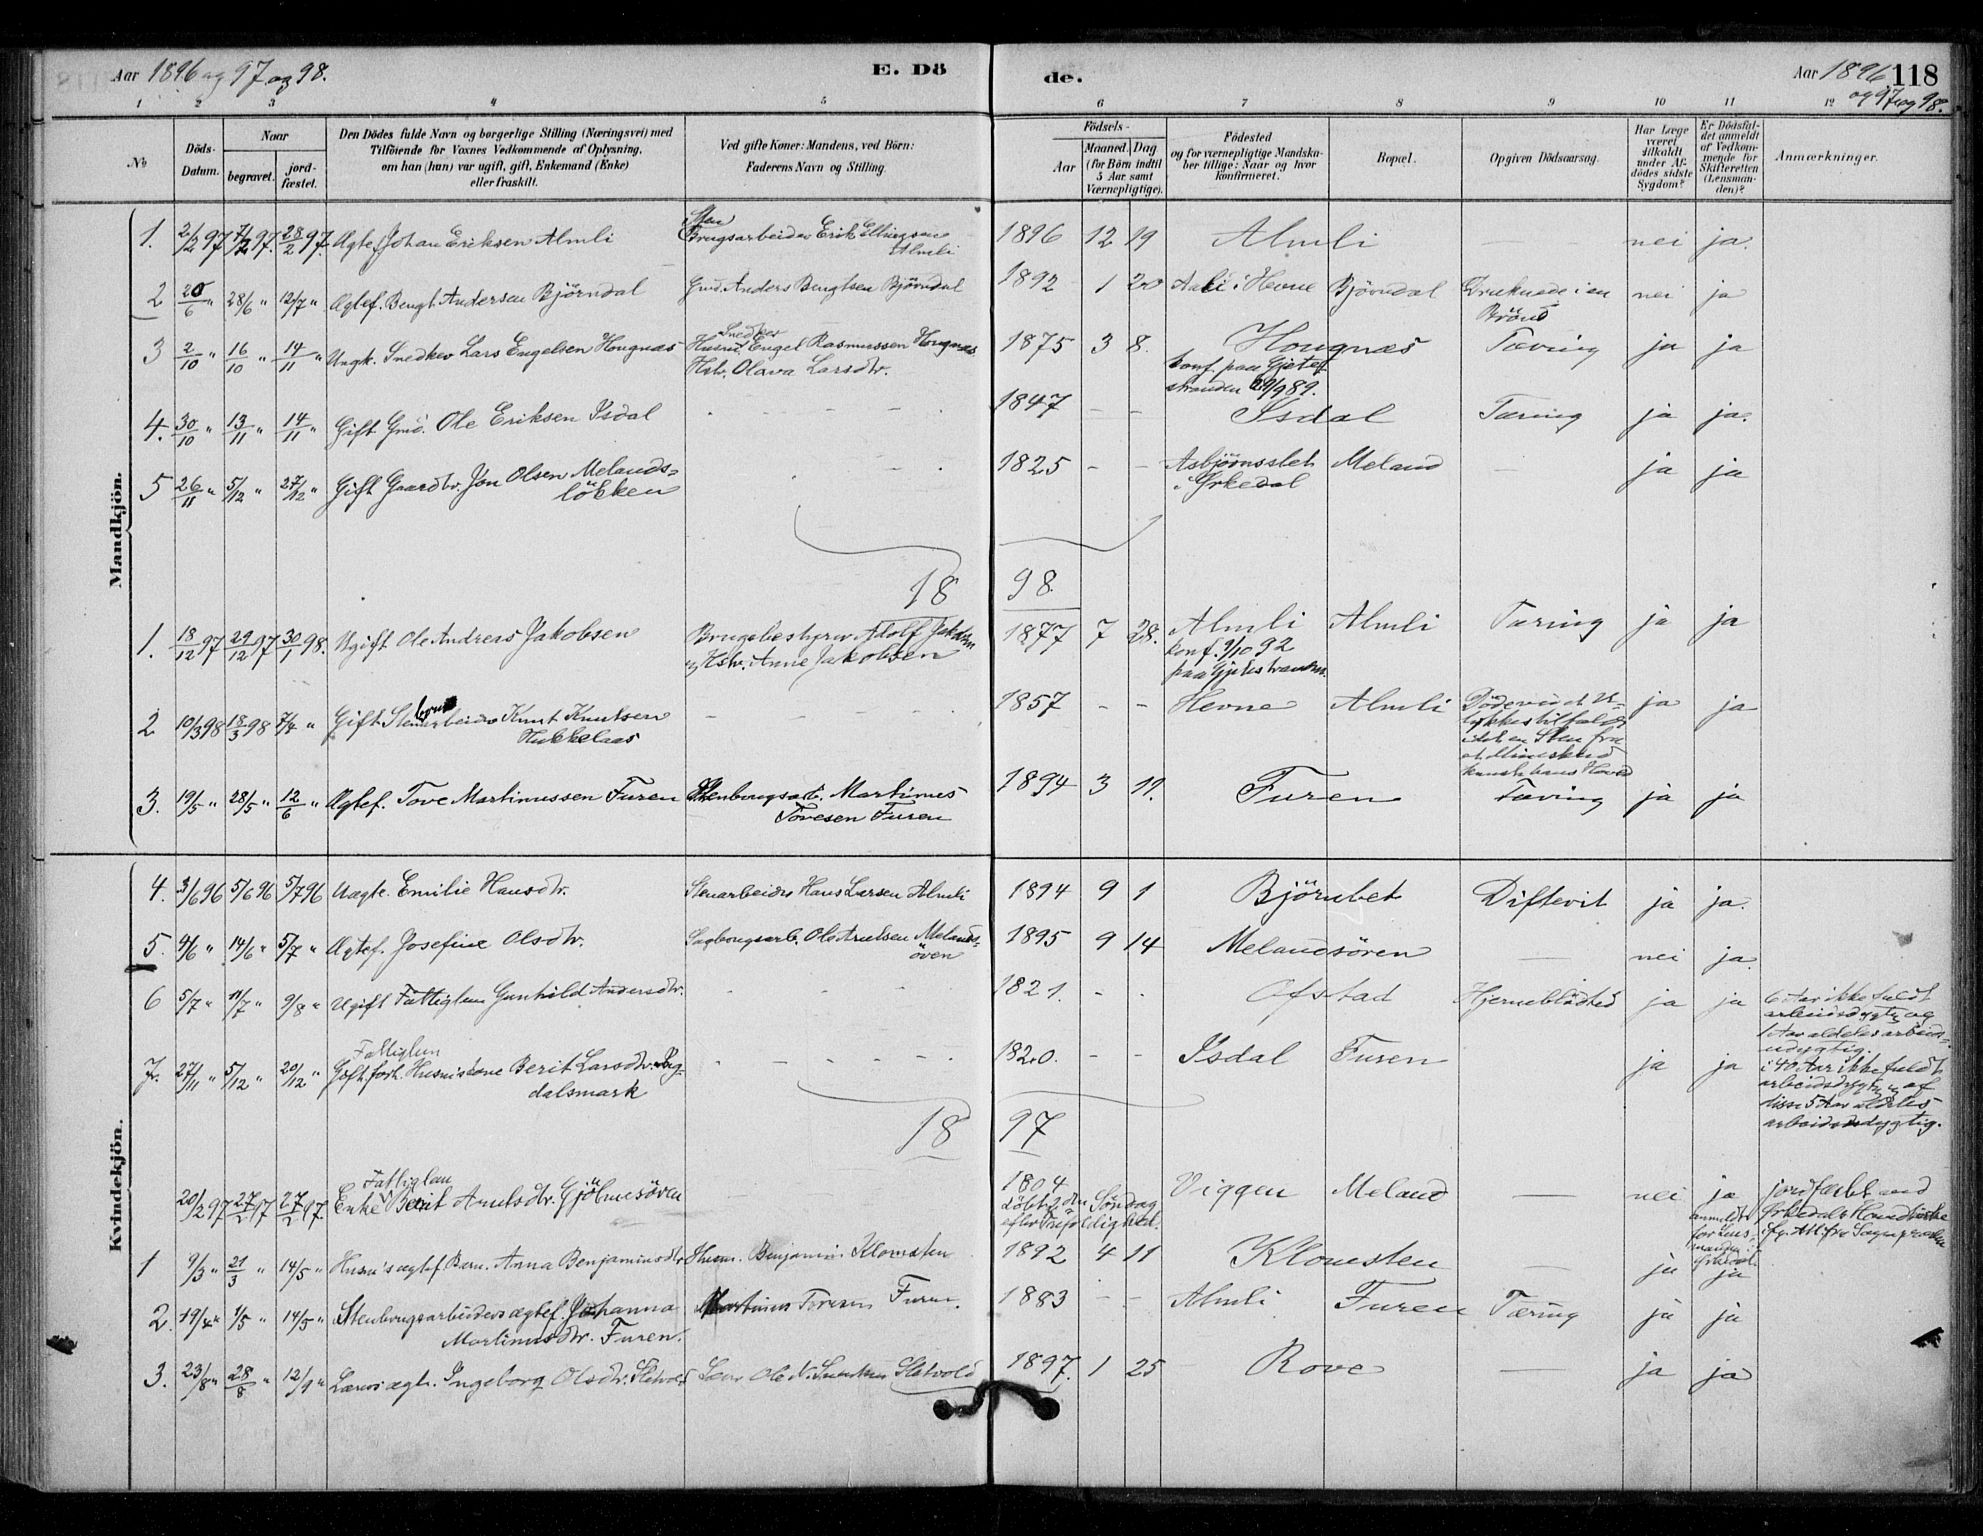 Aar 1896 og 97 og 98.
E. Dö
de.
Aar 1896
118
og 97 og 98.
1 2 3 4 5 6 7 8 9 10 11 12
No
Döds-Datum.
Naar
begravet.
jord-fæstet.
Den Dödes fulde Navn og borgerlige Stilling (Næringsvei) med
Tilföiende for Voxnes Vedkommende af Oplysning,
om han (hun) var ugift, gift, Enkemand (Enke)
eller fraskilt.
Ved gifte Koner: Mandens, ved Börn:
Faderens Navn og Stilling.
Födsels-
Aar
Maaned. Dag
(for Börn indtil
5 Aar samt
Værnepligtige).
Födested
og for værnepligtige Mandska-
ber tillige: Naar og hvor
konfirmeret.
Bopæl.
Opgiven Dödsaarsag.
Har Læge
været
tilkaldt
under Af-
dödes sidste
Sygdom?
Er Dödsfal-
det anmeldt
af Vedkom-
mende for
Skifteretten
(Lensman-
den)?
Anmærkninger.
Mandkjön.
1. 2/2 97 7/2 97. 28/2 97. Ægtef. Johan Eriksen Almli
Sten
Brugsarbeider Erik Ellingsen
Almli
1896 12 19 Almli — nei ja.
2 20/6 " 28/6 " 12/7 " Ægtef. Bengt Andersen Björndal Gmd. Anders Bengtsen Björndal 1892 1 20 Aali i Hevne Björndal Druknede i en nei ja
Brönd
3 2/10 " 16/10 " 14/11 " Ungk. Snedker Lars Engelsen Hougnæs
Snedker
Husm. Engel Rasmussen Hougnæs
Hstr. Olava Larsdtr.
1875 3 8. Hougnæs Tæring ja ja
konf. paa Gjete-
stranden 29/9 89.
4. 30/10 " 13/11 " 14/11 " Gift Gmd. Ole Eriksen Isdal 1847 – – Isdal Tæring ja ja.
5 26/11 " 5/12 " 27/12 " Gift Gaardbr. Jon Olsen Melands-
lökken
1825 – – Asbjörnsslet Meland — ja ja
i Orkedal
18 98.
1. 18/12 97 29/12 97 30/1 98. Ugift Ole Andreas Jakobsen Brugsbestyrer Adolf Jakobsen
og Hstr. Anne Jakobsen
1877 7 28. Almli Almli Tæring ja ja
konf. 9/10 92
paa Gjetestranden.
2 10/3 98 18/3 98 7/4 " Gift Stenbrudarbeider Knut Knutsen
Stubbelaas
1857 – – Hevne Almli Döde ved et U- ja ja
lykkestilfælde
idet en Sten fra
et Mineskud
knuste hans Hoved
3. 19/5 " 28/5 " 12/6 " Ægtef. Tove Martinussen Furen Stenbrugsarb. Martinus
Tovesen Furen
1894 3 19. Furen Tæring ja ja
Kvindekjön.
4. 3/6 96 5/6 96 5/7 96 Uægte. Emilie Hansdtr. Stenarbeider Hans Larsen Almli 1894 9 1 Björnbet Difterit ja ja.
5. 4/6 " 14/6 " 5/7 " Ægtef. Josefine Olsdtr. Sagbrugsarb. Ole Arntsen Melands-
ören
1895 9 14 Melandsören — nei ja.
6 5/7 " 11/7 " 9/8 " Ugift Fattiglem Gunhild Andersdtr. 1821. – – Ofstad Hjerneblödted ja ja
6 Aar ikke fuldt
arbeidsdygtig og
1 Aar aldeles arbeids-
udygtig.
7. 27/11 " 5/12 " 20/12 "
Fattiglem
Gift forh. Husmiskone Berit Larsdtr.
dalsmark
1820. – – Isdal Furen ja ja
i 40 Aar ikke fuldt
arbeidsdygtig, af
disse 5 Aar aldeles
arbeidsudygtig.
18 97
20/2 97 27/2 97 27/2 97.
Fattiglem
Enke Berit Arntsdtr. Gjölmesören —
1804 Viggen Meland — nei ja
döbt 2den Söndag
efter Trefoldighed.
anmeldt
for Lens-
manden i
Orkedal.
jordfæstet ved
Orkedals Hovedkirke
ifg. Att. fra Sognepræsten
1 9/3 " 21/3 " 14/5 " Husm's ægtef. Barn. Anna Benjaminsdtr. Husm. Benjamin Klomsten 1892 4 11 Klomsten — ja ja
2. 19/4 " 1/5 " 14/5 " Stenbrugsarbeiders ægtef. Johanna Martinus Toresen Furen. 1883 – – Almli Furen Tæring ja ja
Martinusdtr. Furen.
3. 23/8 " 28/8 " 12/9 " Lærers ægte. Ingeborg Olsdtr. Sletvold Lærer Ole N. Sletvold 1897. 1 25 Rove — ja ja